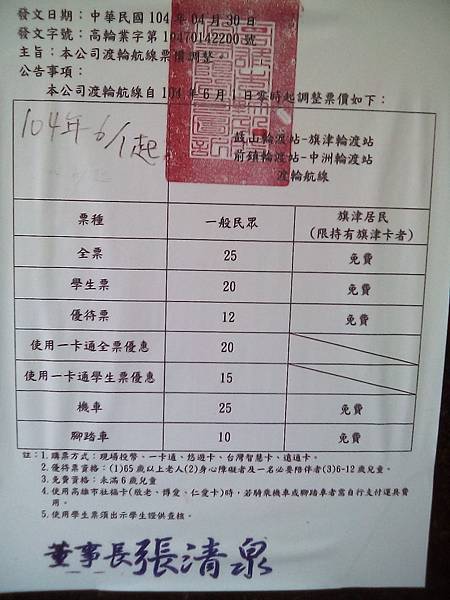 發文日期：中華民國 104 年 04 月 30 日
發文字號：高輪業字第 10470142200 號
主旨：本公司渡輪航線票價調整。
公告事項：
本公司渡輪航線自 104 年 6 月 1 日零時起調整票價如下：
104年6/1起
鼓山輪渡站-旗津輪渡站
前鎮輪渡站-中洲輪渡站
渡輪航線
票種 一般民眾 旗津居民
(限持有旗津卡者)
全票 25 免費
學生票 20 免費
優待票 12 免費
使用一卡通全票優惠 20
使用一卡通學生票優惠 15
機車 25 免費
腳踏車 10 免費
註：1. 購票方式：現場投幣、一卡通、悠遊卡、台灣智慧卡、遠通卡。
2. 優待票資格：(1)65 歲以上老人(2)身心障礙者及一名必要陪伴者(3)6-12 歲兒童。
3. 免費資格：未滿 6 歲兒童
4. 使用高雄市社福卡(敬老、博愛、仁愛卡)時，若騎乘機車或腳踏車者需自行支付運具費
用。
5. 使用學生票須出示學生證供查核。
董事長張清泉